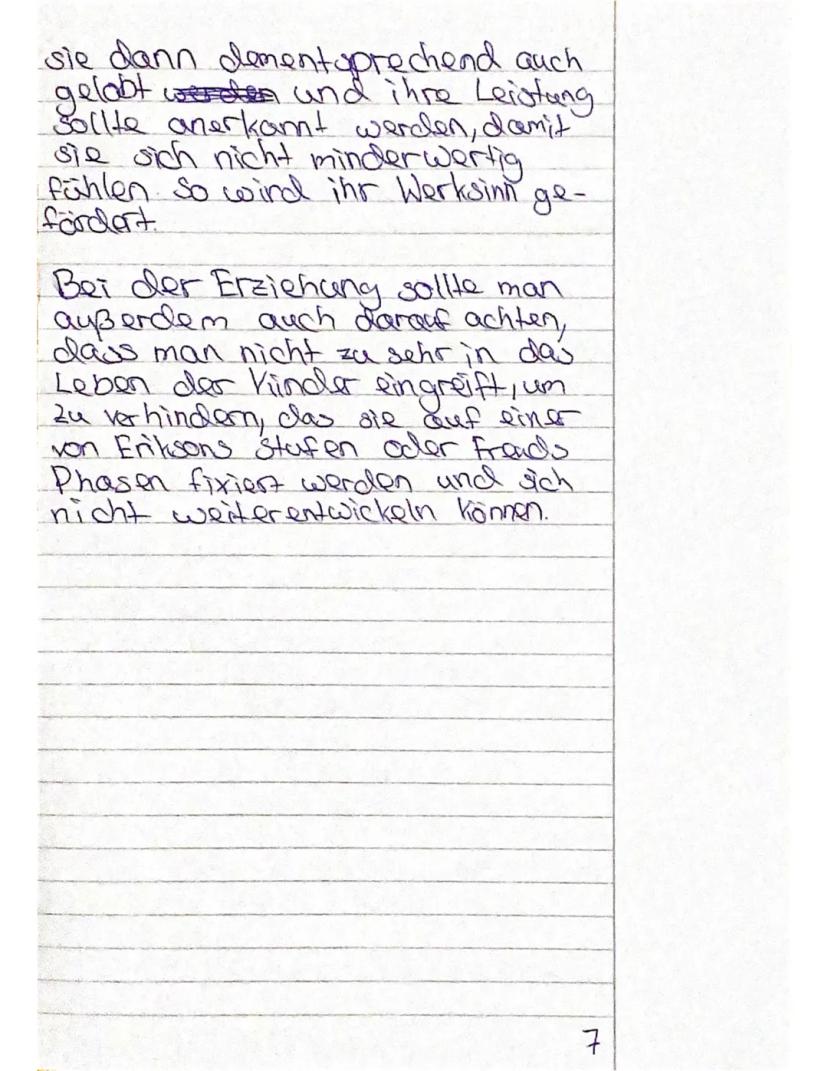 sie dann dementsprechend auch
gelobt werden und ihre Leistung
sollte anerkannt werden, damit
sie sich nicht minderwertig
fühlen. So wird ihr Werksinn ge-
fördert.
Bei der Erziehung sollte man
außerdem auch darauf achten,
dass man nicht zu sehr in das
Leben der Kinder eingreift, um
zu verhindern, das sie auf einer
von Eriksons Stufen oder Freuds
Phasen fixiert werden und sich
nicht weiterentwickeln können.
7